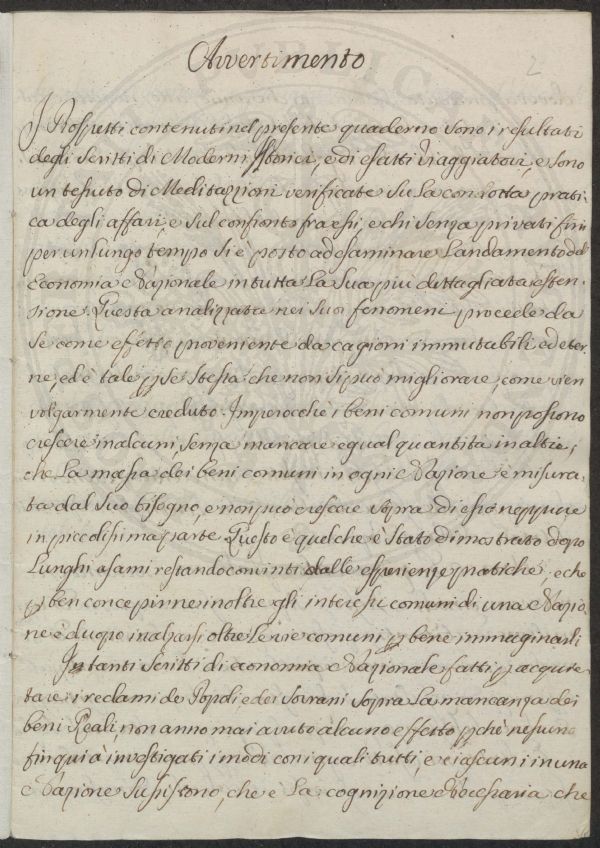 Avvertimento.
2
I Rospetti contenuti nel presente quaderno sono i resultati
degli Scritti di Moderni Istorici, e di esatti Viaggiatori, e sono
un tessuto di Meditazzioni verificate su La condotta prati-
ca degli affari, e sul confronto fra essi, e chi senza privati fini
per un lungo tempo si è posto ad esaminare L'andamento del
Economia Nazionale in tutta La Sua più dettagliata esten-
sione. Questa analizzata nei suoi fenomeni procede da
se come effetto proveniente da cagioni immutabili ed eter-
ne, ed è tale p se Stessa che non si può migliorare, come vien
volgarmente creduto. Imperocchè i beni comuni non possono
crescere in alcuni, senza mancare egual quantita in altri,
che La massa dei beni comuni in ogni Nazione è misura-
ta dal Suo bisogno, e non può crescere sopra di esso neppure
in piccolissima parte. Questo è quel che è Stato dimostrato dopo
Lunghi esami restando convinti dalle esperienze pratiche, e che
p ben concepirne inoltre gli interessi comuni di una Nazio-
ne è duopo inalzarsi oltre Le vie comuni p bene immaginarli
In tanti Scritti di economia Nazionale fatti p acquie-
tare i reclami de Popoli e dei Sovrani sopra La mancanza dei
beni Reali non anno mai avuto alcuno effetto pchè nessuno
fin qui à investigati i modi con i quali tutti, e ciascuni in una
Nazione Sussistono, che è La cognizione Necessaria che